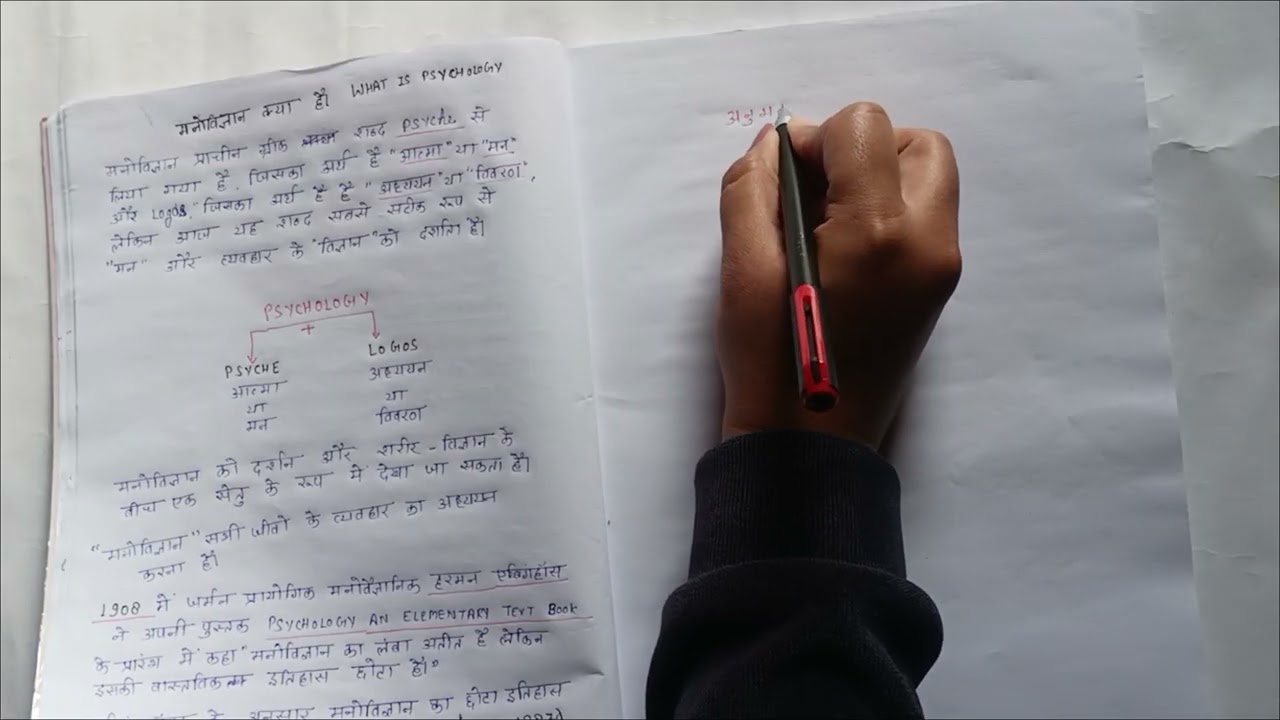 मनोविज्ञान क्या है। WHAT IS PSYCHOLOGY
मनोविज्ञान प्राचीन ग्रीक शब्द PSYCHE से
लिया गया है, जिसका अर्थ है "आत्मा" या "मन"
और LOGOS, "जिसका अर्थ है है "अध्ययन" या "विवरण",
लेकिन आज यह शब्द सबसे सटीक रूप से
"मन" और व्यवहार के "विज्ञान" को दर्शाता है।
PSYCHOLOGY
+
PSYCHE
आत्मा
या
मन
LOGOS
अध्ययन
या
विवरण
मनोविज्ञान को दर्शन और शरीर - विज्ञान के
बीच एक सेतु के रूप में देखा जा सकता है।
"मनोविज्ञान" सभी जीवों के व्यवहार का अध्ययन
करना है।
1908 में जर्मन प्रायोगिक मनोवैज्ञानिक हरमन एबिंगहॉस
ने अपनी पुस्तक PSYCHOLOGY AN ELEMENTARY TEXT BOOK
के प्रारंभ में कहा "मनोविज्ञान का लंबा अतीत है लेकिन
इसकी वास्तविक इतिहास छोटा है।"
के अनुसार मनोविज्ञान का छोटा इतिहास
अनुभ